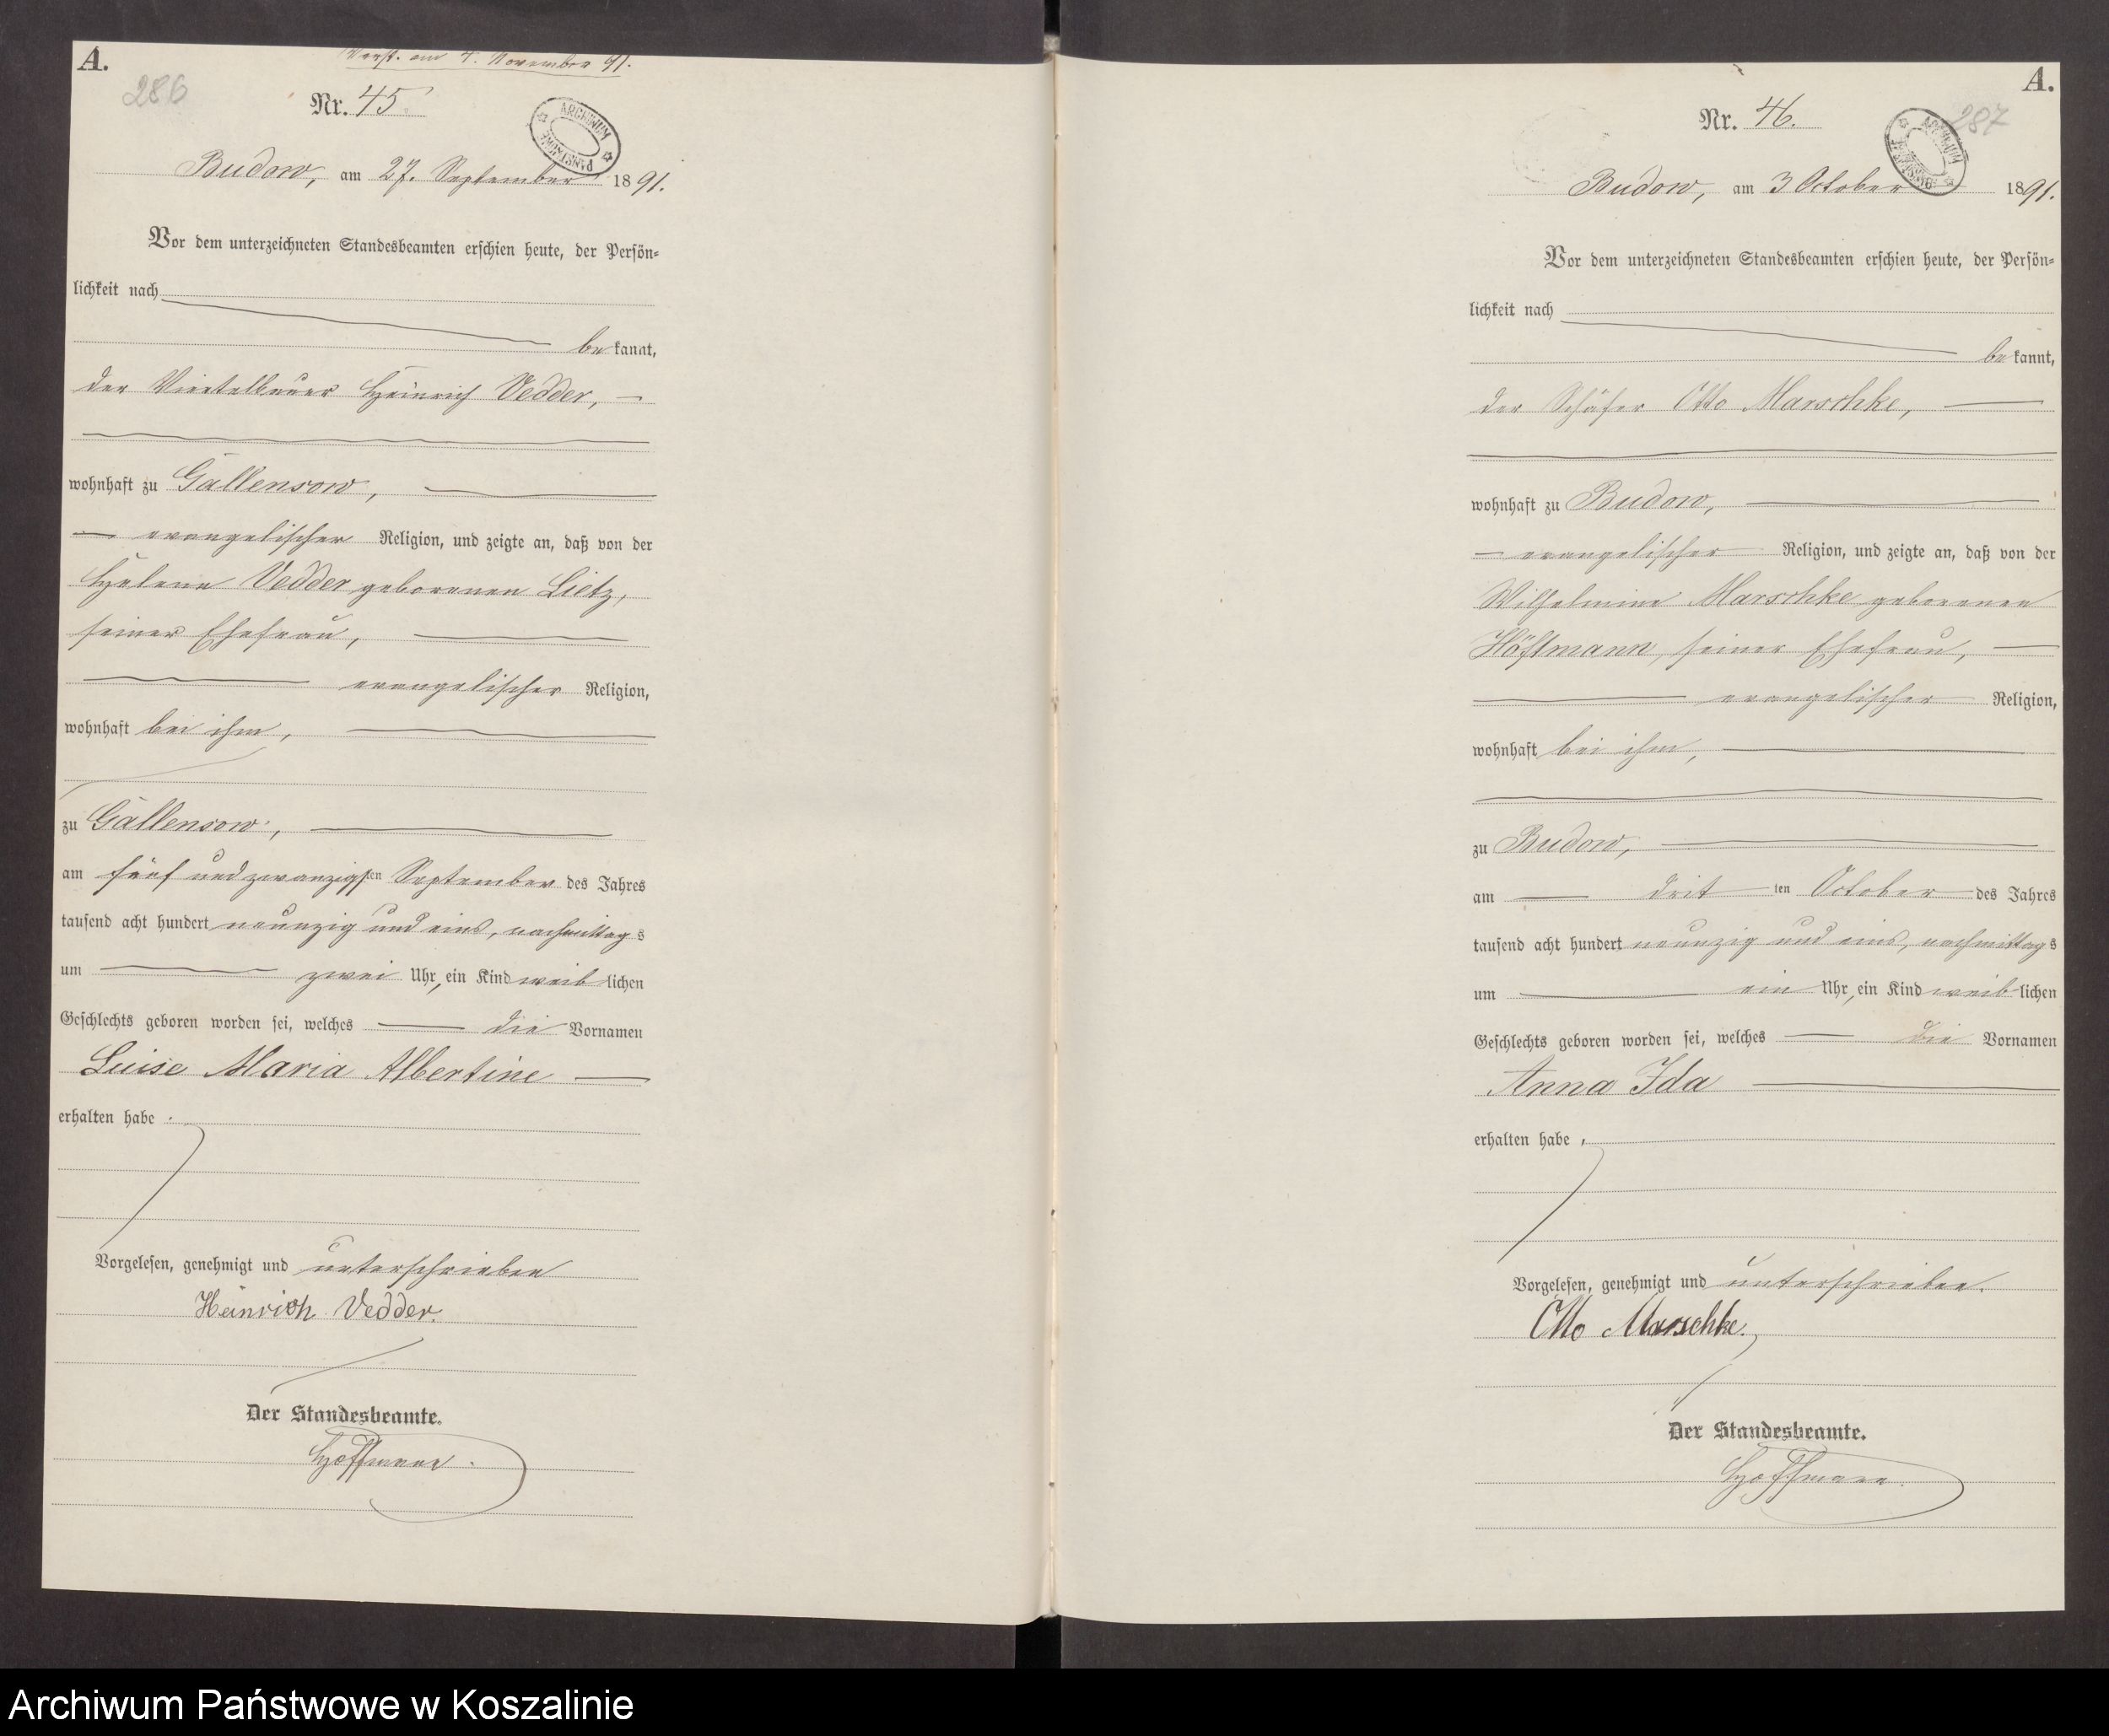 A.
Verst. am 4. November 91.
286
Nr. 45
ARCHIWUM PAŃSTWOWE
Budow, am 27. September 1891.
Vor dem unterzeichneten Standesbeamten erschien heute, der Persön-
lichkeit nach
bekannt,
der Viertelbauer Heinrich Vedder,
wohnhaft zu Gallensow,
evangelischer Religion, und zeigte an, daß von der
Helene Vedder geborenen Lietz,
seiner Ehefrau,
evangelischer Religion,
wohnhaft bei ihm,
zu Gallensow,
am fünf und zwanzigsten September des Jahres
tausend acht hundert neunzig und eins, nachmittags
um zwei Uhr, ein Kind weiblichen
Geschlechts geboren worden sei, welches die Vornamen
Luise Maria Albertine
erhalten habe.
Vorgelesen, genehmigt und unterschrieben
Heinrich Vedder.
Der Standesbeamte.
Hoffmann.
A.
287
Nr. 46.
ARCHIWUM
Budow, am 3 October 1891.
Vor dem unterzeichneten Standesbeamten erschien heute, der Persön-
lichkeit nach
bekannt,
der Schäfer Otto Marschke,
wohnhaft zu Budow,
evangelischer Religion, und zeigte an, daß von der
Wilhelmine Marschke geborenen
Höftmann, seiner Ehefrau,
evangelischer Religion,
wohnhaft bei ihm,
zu Budow,
am dritten October des Jahres
tausend acht hundert neunzig und eins, nachmittags
um ein Uhr, ein Kind weiblichen
Geschlechts geboren worden sei, welches die Vornamen
Anna Ida
erhalten habe.
Vorgelesen, genehmigt und unterschrieben.
Otto Marschke.
Der Standesbeamte.
Hoffmann.
Archiwum Państwowe w Koszalinie